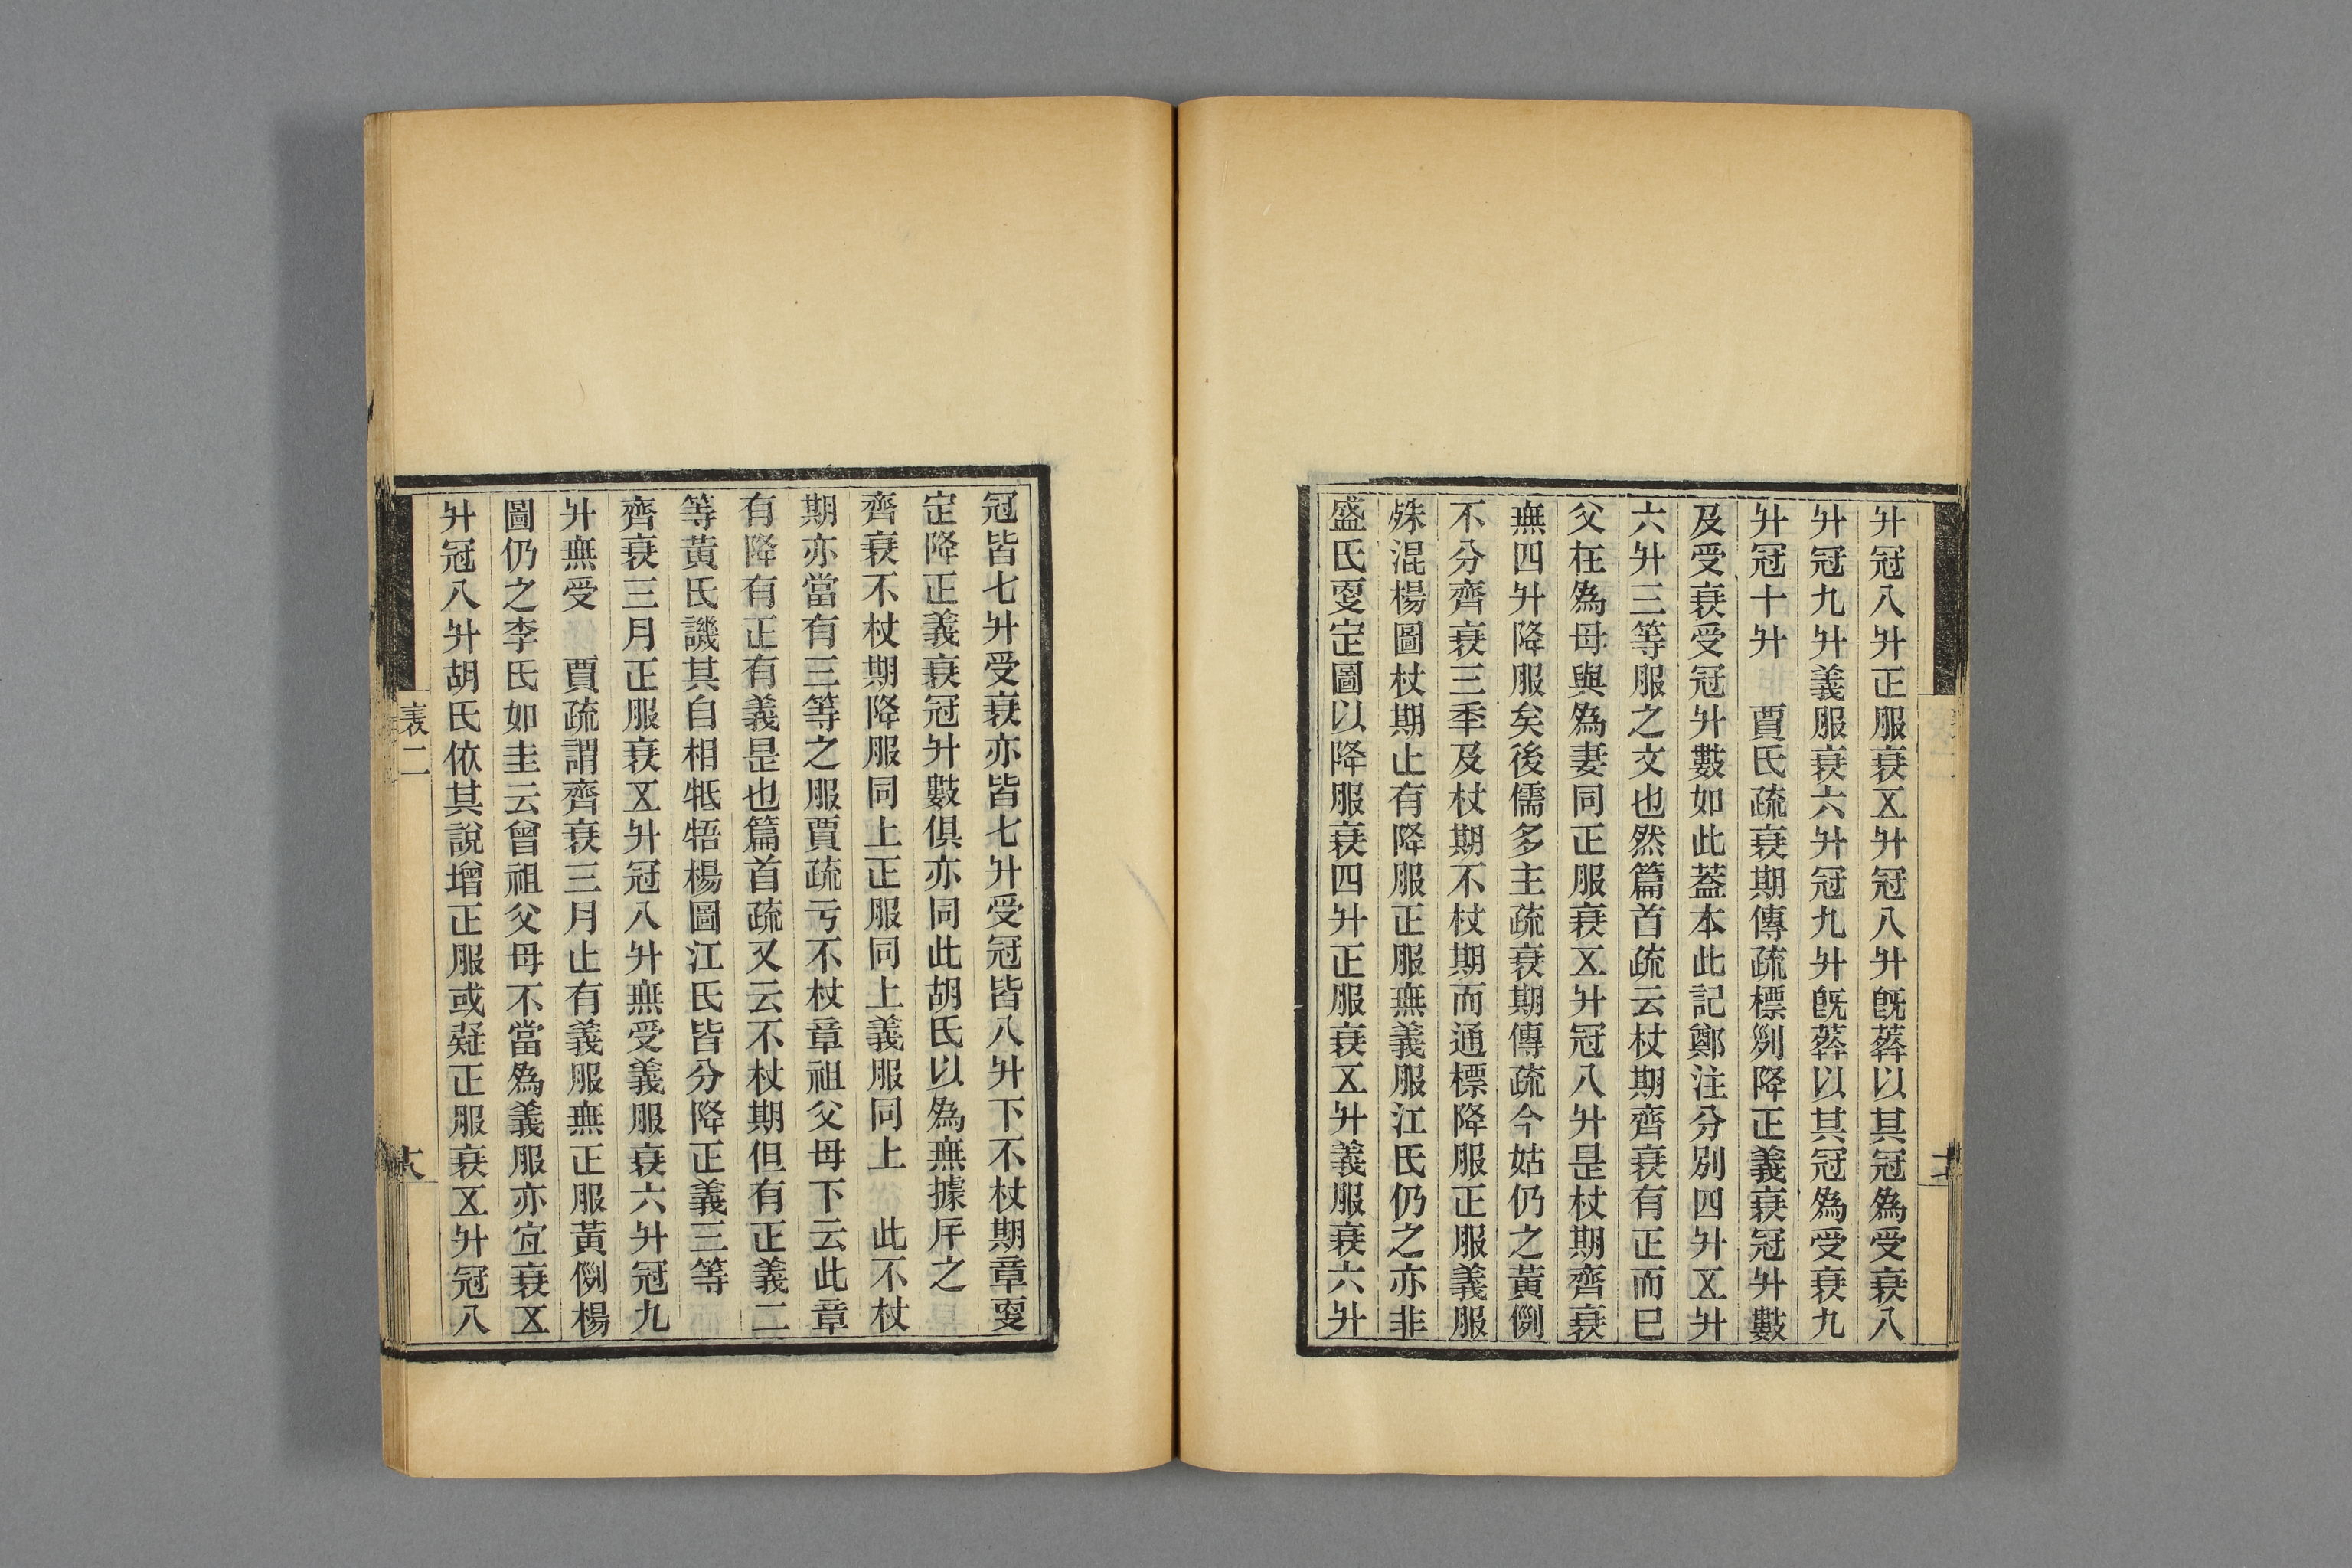 升冠八升正服衰㐅升冠八升旣葬以其冠爲受衰八
升冠九升義服衰六升冠九升旣葬以其冠爲受衰九
升冠十升　賈氏疏衰期傳疏標列降正義衰冠升數
及受衰受冠升數如此葢本此記鄭注分別四升㐅升
六升三等服之文也然篇首疏云杖期齊衰有正而已
父在爲母與爲妻同正服衰㐅升冠八升是杖期齊衰
無四升降服矣後儒多主疏衰期傳疏今姑仍之黃例
不分齊衰三年及杖期不杖期而通標降服正服義服
殊混楊圖杖期止有降服正服無義服江氏仍之亦非
盛氏㪅定圖以降服衰四升正服衰㐅升義服衰六升
冠皆七升受衰亦皆七升受冠皆八升下不杖期章㪅
定降正義衰冠升數俱亦同此胡氏以爲無據斥之
齊衰不杖期降服同上正服同上義服同上　此不杖
期亦當有三等之服賈疏亏不杖章祖父母下云此章
有降有正有義是也篇首疏又云不杖期但有正義二
等黃氏譏其自相牴牾楊圖江氏皆分降正義三等
齊衰三月正服衰㐅升冠八升無受義服衰六升冠九
升無受　賈疏謂齊衰三月止有義服無正服黃例楊
圖仍之李氏如圭云曾祖父母不當爲義服亦宜衰㐅
升冠八升胡氏依其說增正服或疑正服衰㐅升冠八
表二